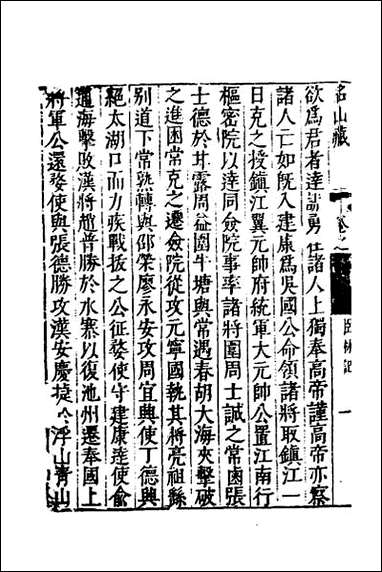 名山藏 臣林記 一
欲爲君者達謀勇 諸人上獨奉高帝謹高帝亦察
諸人亡如旣入建康爲吳國公命諸將取鎮江一
日克之授鎮江翼元帥府統軍大元帥公置江南行
樞密院以達同僉院事率諸將圍周士誠之常困張
士德於甘露周益圍牛塘與常遇春胡大海夾擊破
之進困常克之遷僉院從攻元寧國執其將亮祖繇
别道下常熟轉與邵榮廖永安攻周宜興使丁德興
絕太湖口而力疾戰拔之公征婺使守建康達使俞
通海擊敗漢將趙普勝於水寨以復池州遷奉國上
將軍公還婺使與張德勝攻漢安慶 浮山青山